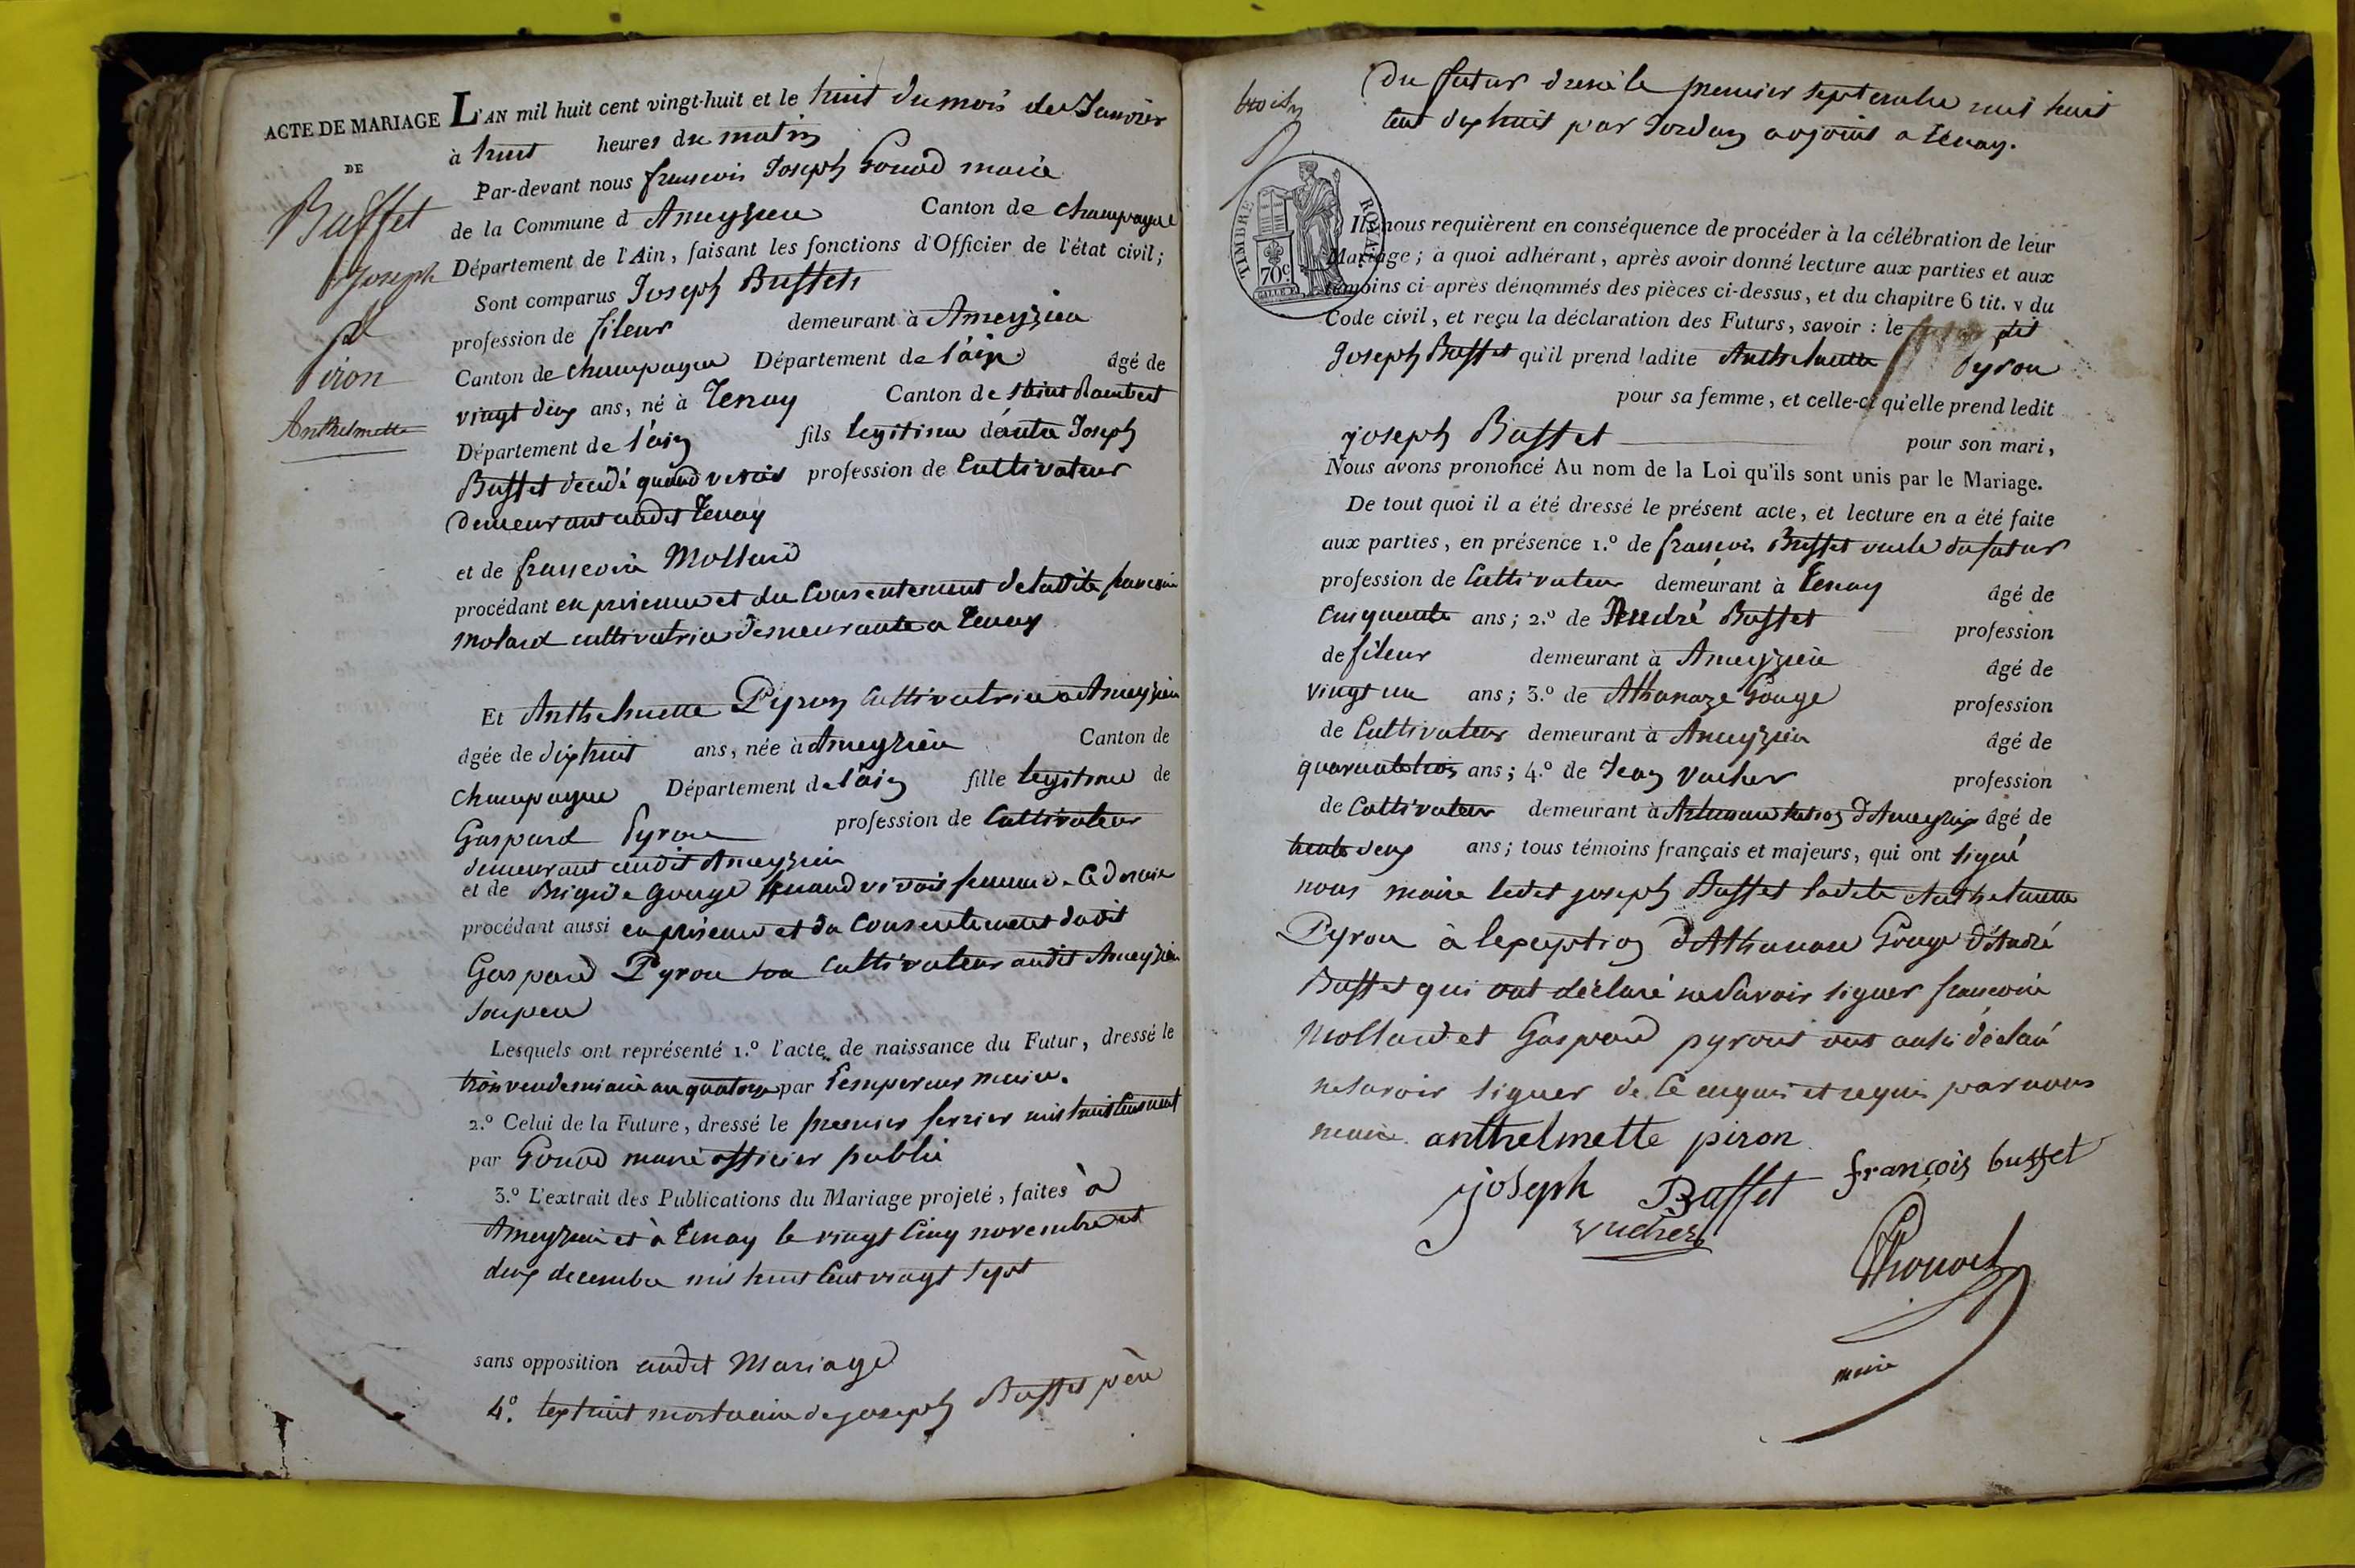 ACTE DE MARIAGE
DE
Buffet
Joseph
et
Piron
Anthelmette
L'AN mil huit cent vingt-huit et le huit du mois de Janvier
à huit heures du matin
Par-devant nous francois Joseph Gonod maire
de la Commune d Ameyzieu Canton de champagne
Département de l'Ain, faisant les fonctions d'Officier de l'état civil;
Sont comparus Joseph Buffet
profession de fileur demeurant à Ameyzieu
Canton de champagne Département de l'ain âgé de
vingt deux ans, né à Tenay Canton de Saint Rambert
Département de l'ain fils legitime d'autre Joseph
Buffet decedé quand vivois profession de Cultivateur
demeurant audit Tenay
et de francoise Mollard
procédant en presence et du Consentement de ladite francoise
molard cultivatrice demeurante a Tenay
Et Anthelmette Pyron Cultivatrice a Ameyzieu
âgée de dixhuit ans, née à Ameyzieu Canton de
champagne Département de l'ain fille legitime de
Gaspard Pyron profession de Cultivateur
demeurant audit Ameyzieu
et de Brigide Gouge quand vivois femme
procédant aussi en presence et du Consentement dudit
Gaspard Pyron son Cultivateur audit Ameyzieu
son pere
Lesquels ont représenté 1.º l'acte de naissance du Futur, dressé le
trois vendemiaire an quatorze par Lempereur maire.
2.º Celui de la Future, dressé le premier fevrier mil huit Cent neuf
par Gonod maire officier public
3.º L'extrait des Publications du Mariage projeté, faites à
Ameyzieu et à Tenay le vingt Cinq novembre et
deux decembre mil huit Cent vingt sept
sans opposition audit Mariage
4.º lextrait mortuaire de joseph Buffet père
du futur dressé le premier septembre mil huit
Cent dixhuit par Jordan adjoint a Tenay.
TIMBRE ROYAL
70c
Ils nous requièrent en conséquence de procéder à la célébration de leur
Mariage; à quoi adhérant, après avoir donné lecture aux parties et aux
témoins ci-après dénommés des pièces ci-dessus, et du chapitre 6 tit. v du
Code civil, et reçu la déclaration des Futurs, savoir : le dit
Joseph Buffet qu'il prend ladite Anthelmette Pyron
pour sa femme, et celle-ci qu'elle prend ledit
joseph Buffet pour son mari,
Nous avons prononcé Au nom de la Loi qu'ils sont unis par le Mariage.
De tout quoi il a été dressé le présent acte, et lecture en a été faite
aux parties, en présence 1.º de francois Buffet oncle du futur
profession de Cultivateur demeurant à Tenay âgé de
Cinquante ans; 2.º de André Buffet profession
de fileur demeurant à Ameyzieu âgé de
vingt un ans; 3.º de Athanaze Gouge profession
de Cultivateur demeurant à Ameyzieu âgé de
quarante trois ans; 4.º de Jean Vucher profession
de Cultivateur demeurant à d'Ameyzieu âgé de
trente deux ans; tous témoins français et majeurs, qui ont signé
nous maire ledit joseph Buffet ladite Anthelmette
Pyron à lexception d'Athanase Gouge d'André
Buffet qui ont déclaré ne Savoir signer francoise
Mollard et Gaspard pyront ont aussi déclaré
ne savoir signer de Ce enquis et requis par nous
maire. anthelmette piron
joseph Buffet françois buffet
vucher
Gonod
maire